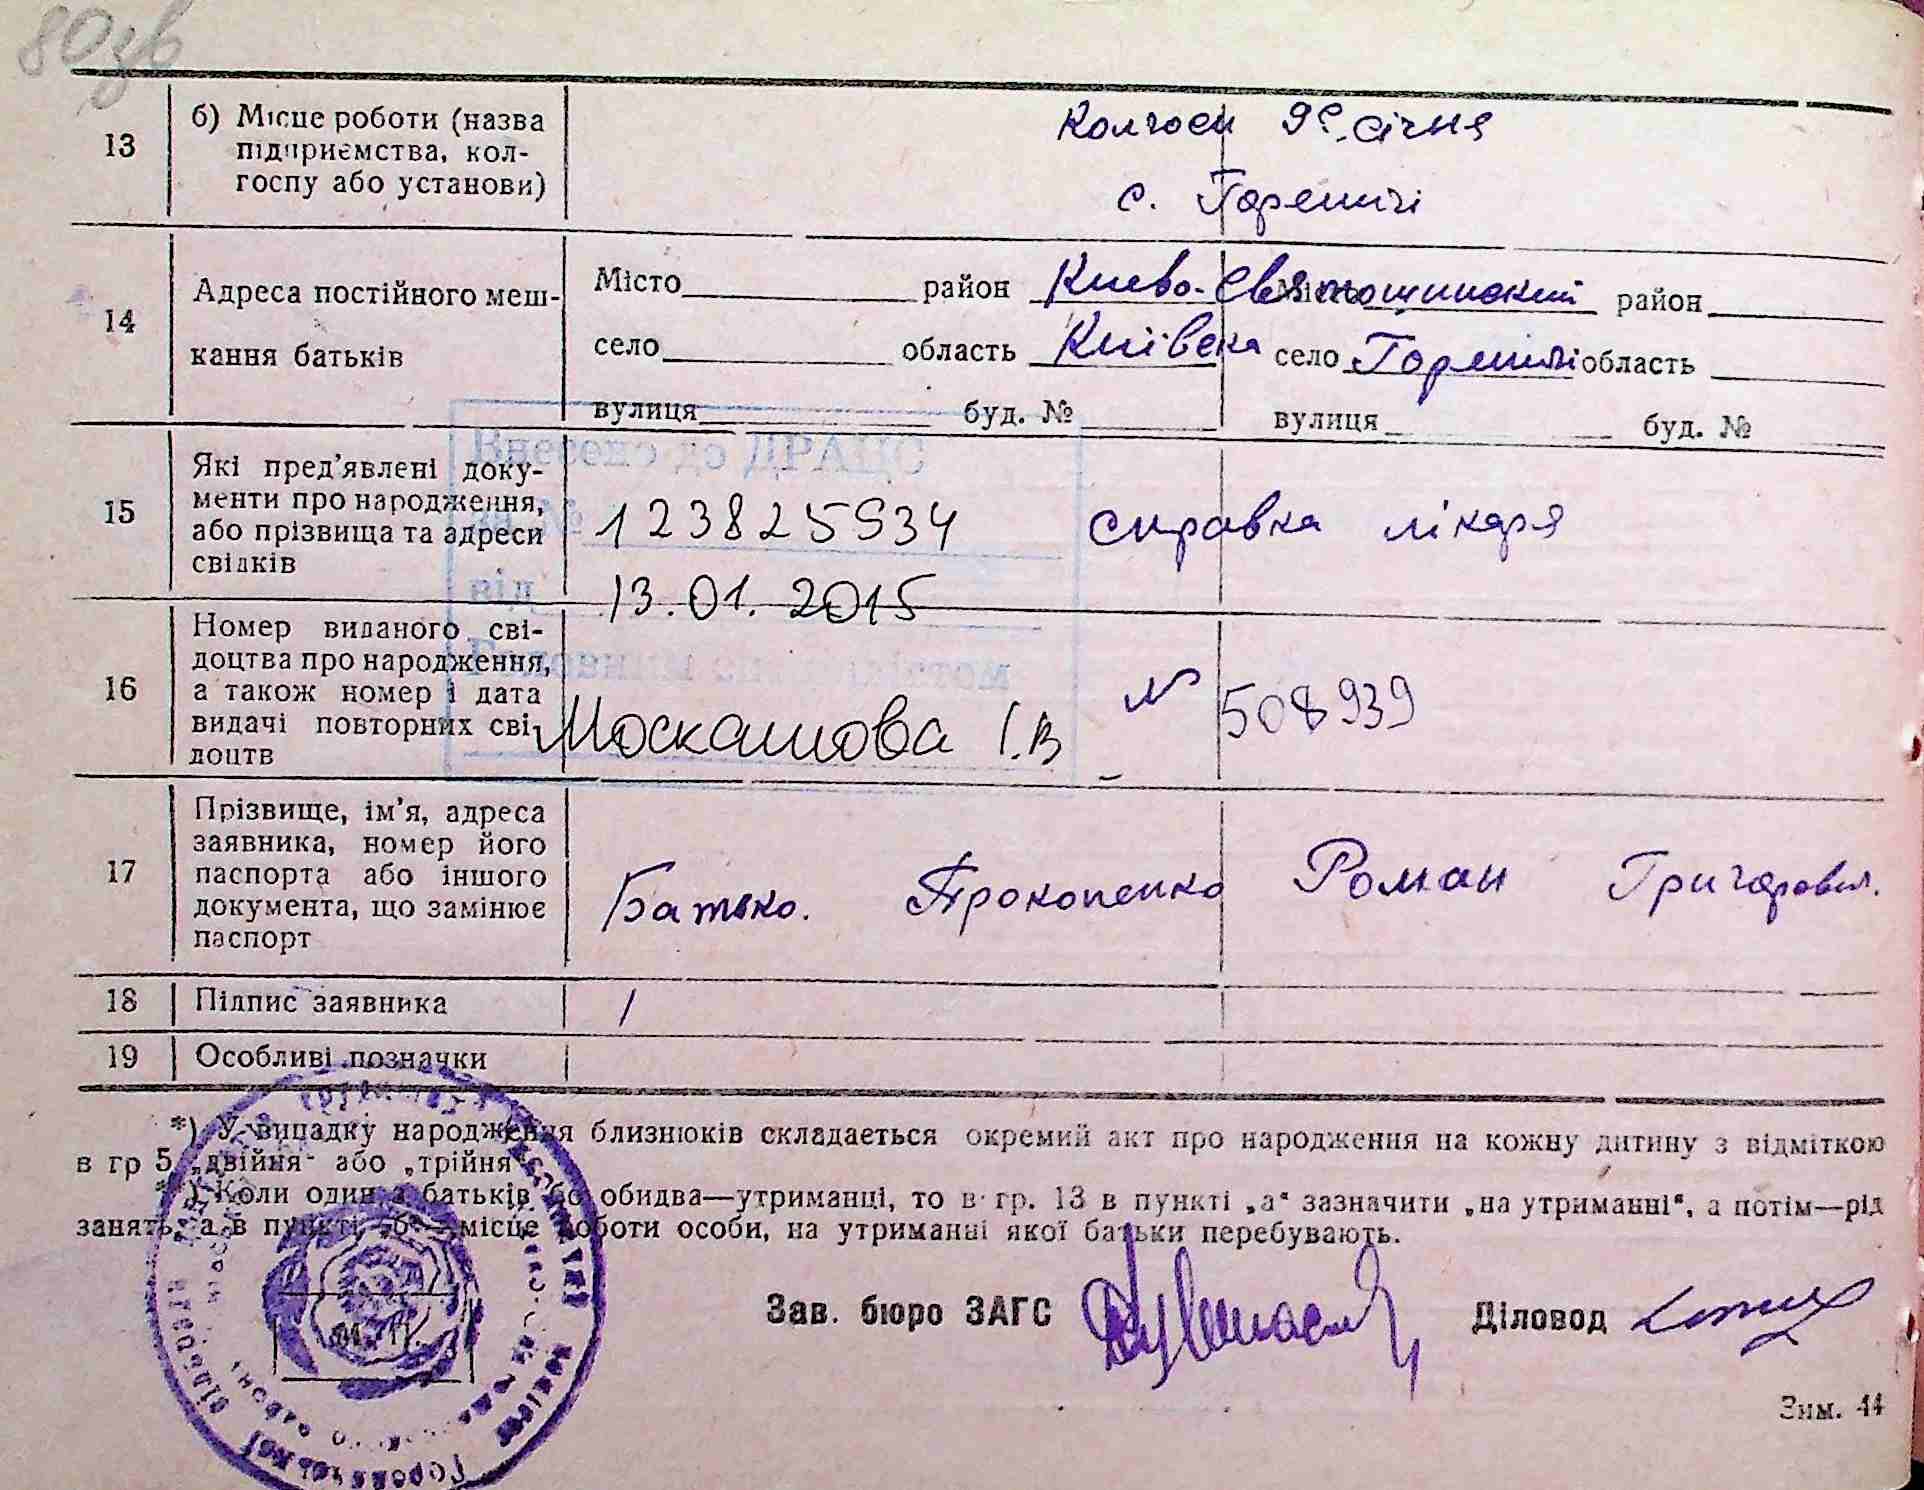 80зв
13
б) Місце роботи (назва
підприємства, кол-
госпу або установи)
Колгосп 9е січня
с. Гореничі
14
Адреса постійного меш-
кання батьків
Місто район Киево-Святошинский
Місто район
село область Київска
село Гореничі область
вулиця буд. №
вулиця буд. №
15
Які пред'явлені доку-
менти про народження,
або прізвища та адреси
свідків
Внесено до ДРАЦС
за № 123825934
від 13.01.2015
справка лікаря
16
Номер виданого сві-
доцтва про народження,
а також номер і дата
видачі повторних сві-
доцтв
Головним спеціалістом
Москашова І.В
№ 508939
17
Прізвище, ім'я, адреса
заявника, номер його
паспорта або іншого
документа, що замінює
паспорт
Батько. Прокопенко Роман Григорович.
18
Підпис заявника
19
Особливі позначки
*) У випадку народження близнюків складається окремий акт про народження на кожну дитину з відміткою
в гр 5 „двійня" або „трійня"
**) Коли один з батьків або обидва—утриманці, то в гр. 13 в пункті „а" зазначити „на утриманні", а потім—рід
занять, а в пункті „б"—місце роботи особи, на утриманні якої батьки перебувають.
М. П.
Зав. бюро ЗАГС
Діловод
Зим. 44